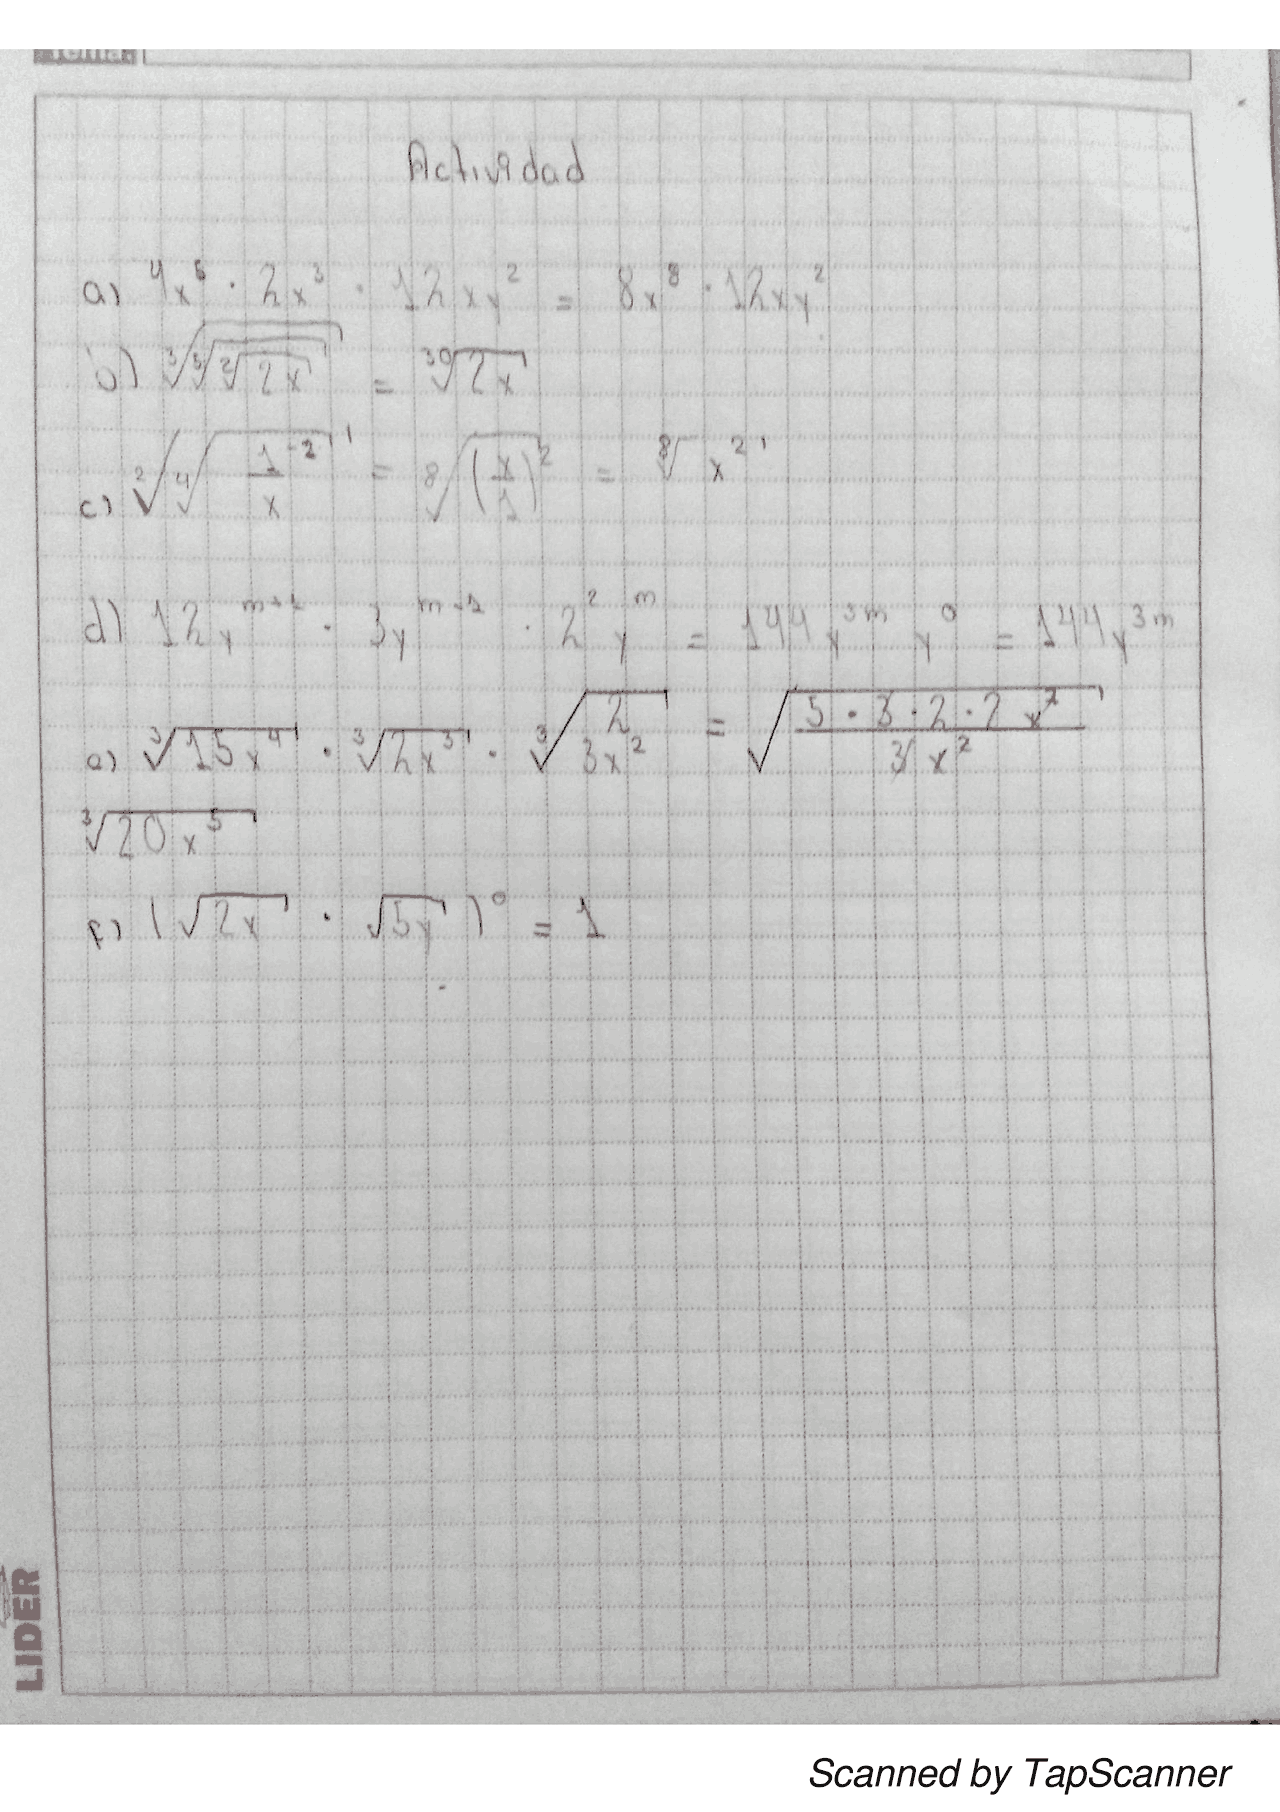 Tema:
Actividad
a) 4x⁵ · 2x³ · 12xy² = 8x⁸ · 12xy²
b) ∛(⁵√(²√(2x))) = ³⁰√(2x)
c) ²√(⁴√(1/x ⁻²)) = ⁸√((x/1)²) = ⁸√(x²)
d) 12x · 3y · 2² y^m = 144 x^3m y⁰ = 144 x^3m
e) ∛(15x⁴) · ∛(2x³) · ∛(2/3x²) = √(5 · 3 · 2 · 2 x⁷ / 3x²)
∛(20x⁵)
f) (√(2x) · √(5y))⁰ = 1
LIDER
Scanned by TapScanner